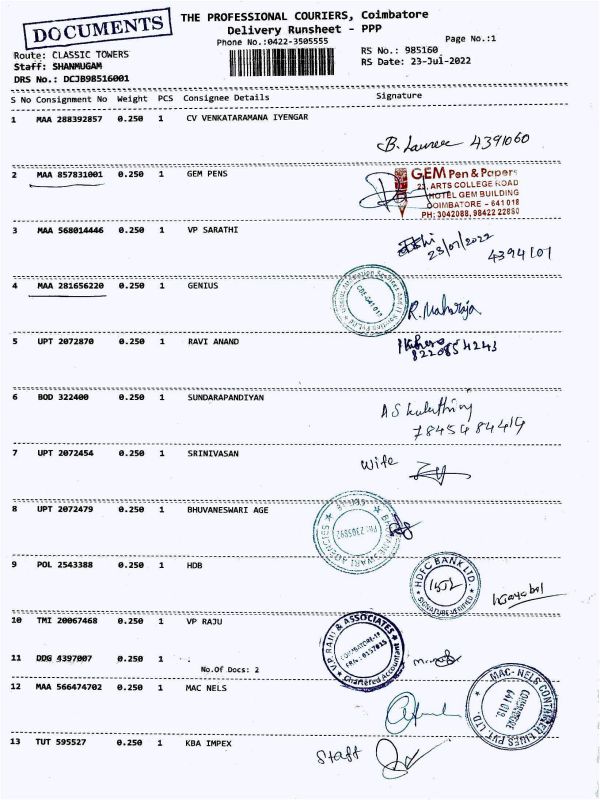 DOCUMENTS
THE PROFESSIONAL COURIERS, Coimbatore
Delivery Runsheet - PPP
Phone No.:0422-3505555
Page No.:1
Route: CLASSIC TOWERS
RS No.: 985160
Staff: SHANMUGAM
RS Date: 23-Jul-2022
DRS No.: DCJB98516001
S No Consignment No Weight PCS Consignee Details Signature
1 MAA 288392857 0.250 1 CV VENKATARAMANA IYENGAR
B. 4391060
2 MAA 857831001 0.250 1 GEM PENS
GEM Pen & Papers
23, ARTS COLLEGE ROAD
HOTEL GEM BUILDING
COIMBATORE - 641 018
PH: 3042088, 98422 22880
3 MAA 568014446 0.250 1 VP SARATHI
23/07/2022
4394101
4 MAA 281656220 0.250 1 GENIUS
CBE-641 017
R. Maharaja
5 UPT 2072870 0.250 1 RAVI ANAND
8220854243
6 BOD 322400 0.250 1 SUNDARAPANDIYAN
A S
7845484419
7 UPT 2072454 0.250 1 SRINIVASAN
Wife
8 UPT 2072479 0.250 1 BHUVANESWARI AGE
BHUVANESWARI AGENCIES
9 POL 2543388 0.250 1 HDB
HDFC BANK LTD.
SIGNATURE VERIFIED
10 TMI 20067468 0.250 1 VP RAJU
V.P RAJU & ASSOCIATES
COIMBATORE-18
Chartered Accountant
11 DDG 4397007 0.250 1 .
No.Of Docs: 2
12 MAA 566474702 0.250 1 MAC NELS
MAC- NELS CONTAINER LINES PVT. LTD.
COIMBATORE
641 018
13 TUT 595527 0.250 1 KBA IMPEX
Staff